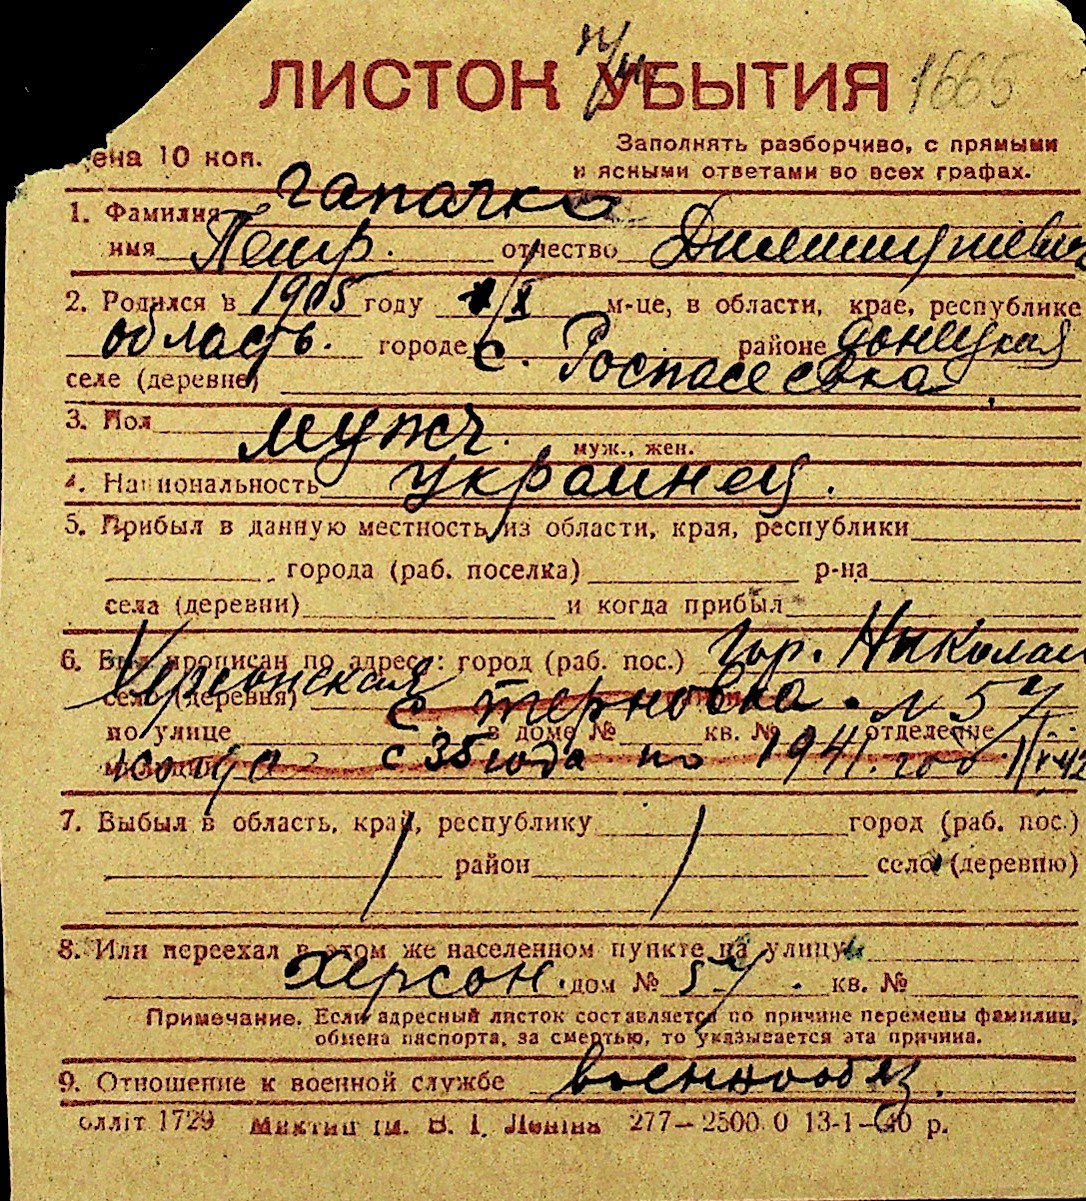 ЛИСТОК УБЫТИЯ 1665
ена 10 коп.
Заполнять разборчиво, с прямыми
и ясными ответами во всех графах.
1. Фамилия
имя Петр. отчество
2. Родился в 1905 году м-це, в области, крае, республике
область. городе с. районе Донецкая
селе (деревне)
3. Пол мужч.
муж., жен.
4. Национальность украинец.
5. Прибыл в данную местность из области, края, республики
города (раб. поселка) р-на
села (деревни) и когда прибыл
6. Был прописан по адресу: город (раб. пос.) гор. Николаи
село (деревня) Херсонская с терновка. 57
по улице в доме № кв. № отделение
милиции с 35 года по 1941. год
7. Выбыл в область, край, республику город (раб. пос.)
район село (деревню)
8. Или переехал в этом же населенном пункте на улицу
Херсон. дом № 57. кв. №
Примечание. Если адресный листок составляется по причине перемены фамилии,
обмена паспорта, за смертью, то указывается эта причина.
9. Отношение к военной службе военнообяз.
олліт 1729 ім. В. І. Леніна 277—2500 0 13-1-40 р.